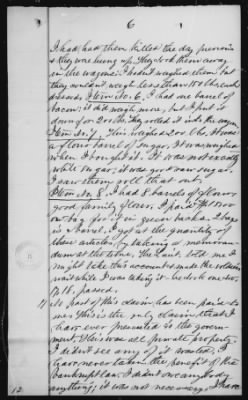 6
I had had them killed the day previous
& they was hung up. They took them away
in the wagons. I hadn't weighed them but
they wouldn't weigh less than 150 lbs each
dressed. Item No. 6. I had one barrel of
bacon: it did weigh more, but I put it
down for 200 lbs. They rolled it into the wagon.
Item No. 7. This weighed 200 lbs. It was
a flour barrel of sugar. It was weighed
when I bought it. It was not exactly
white sugar; it was good brown sugar.
I saw them roll that out.
Item No. 8. I had 8 barrels of flour,
good family flour. I paid
a bag for it in green backs. 2 bags
is a barrel. I got at the quantity of
these articles by taking a memoran-
dum at the time. The told me I
might take this account & made the
wait while I was taking it. he took one too,
& passed.
No part of this claim has been paid to
me. This is the only claim that I
have ever presented to the govern-
ment. This was all private property.
I didn't see any of it wasted. I
have never taken the benefit of the
bankrupt law. I didn't owe anybody
anything; it was not necessary I have